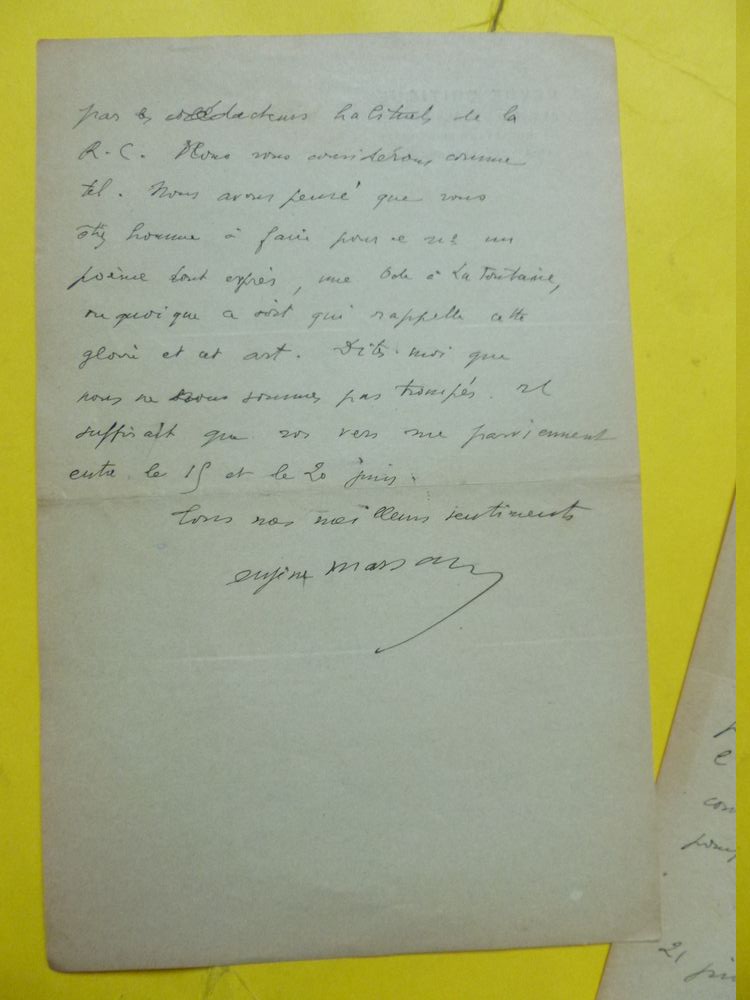 par les rédacteurs habituels de la
R.C. Nous vous considérons comme
tel. Nous avons pensé que vous
étiez homme à faire pour ce un
poème tout exprès, une Ode à La Fontaine,
ou quoi que ce soit qui rappelle cette
gloire et cet art. Dites-moi que
nous ne nous sommes pas trompés. Il
suffirait que vos vers me parviennent
entre le 15 et le 20 juin.
Tous nos meilleurs sentiments
eugène marsan
e
21 juin